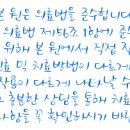 본 원은 의료법을 준수합니다
의료법 제56조 1항에 준수
위해 본 원에서 직접 작
료 및 치료방법이 다르게
작용이 다르게 나타날 수
충분한 상담을 통해 치료
사항을 꼭 확인하시기 바